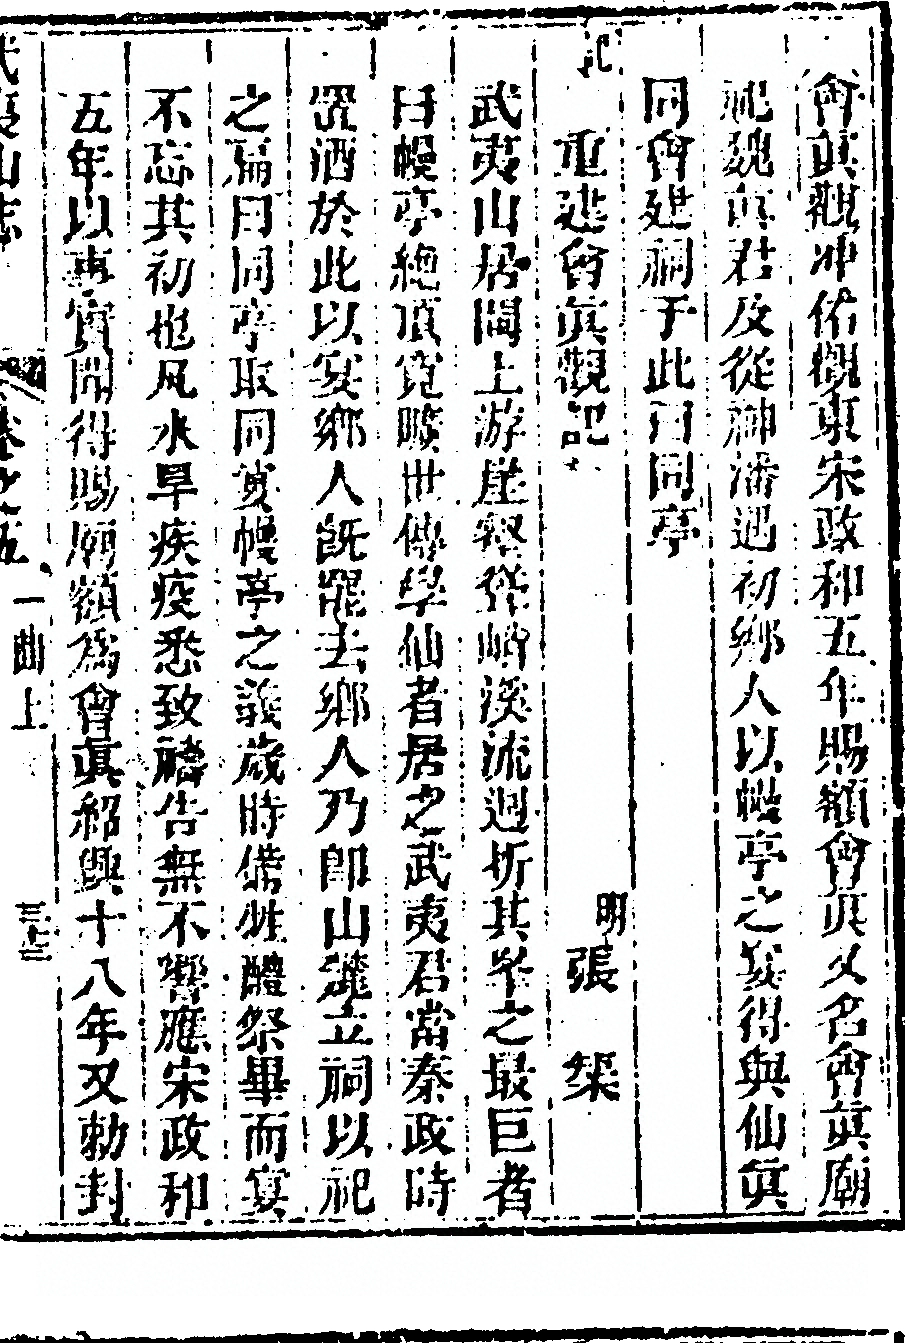 會眞觀冲佑觀東宋政和五年賜額會眞又名會眞廟
祀魏眞君及從神潘遇初鄉人以幔亭之宴得與仙眞
同會建祠于此曰同亭
記
重建會眞觀記
明張 榘
武夷山居閩上游崖壑聳峭溪流迴折其峯之最巨者
曰幔亭絶頂寬曠世傳學仙者居之武夷君當秦政時
置酒於此以宴鄉人既罷去鄉人乃卽山麓立祠以祀
之扁曰同亭取同宴幔亭之義歳時備牲醴祭畢而宴
不忘其初也凡水旱疾疫悉致禱告無不響應宋政和
五年以事實聞得賜廟額爲會眞紹興十八年又勅封
武夷山志
卷之五
一曲上
三十三